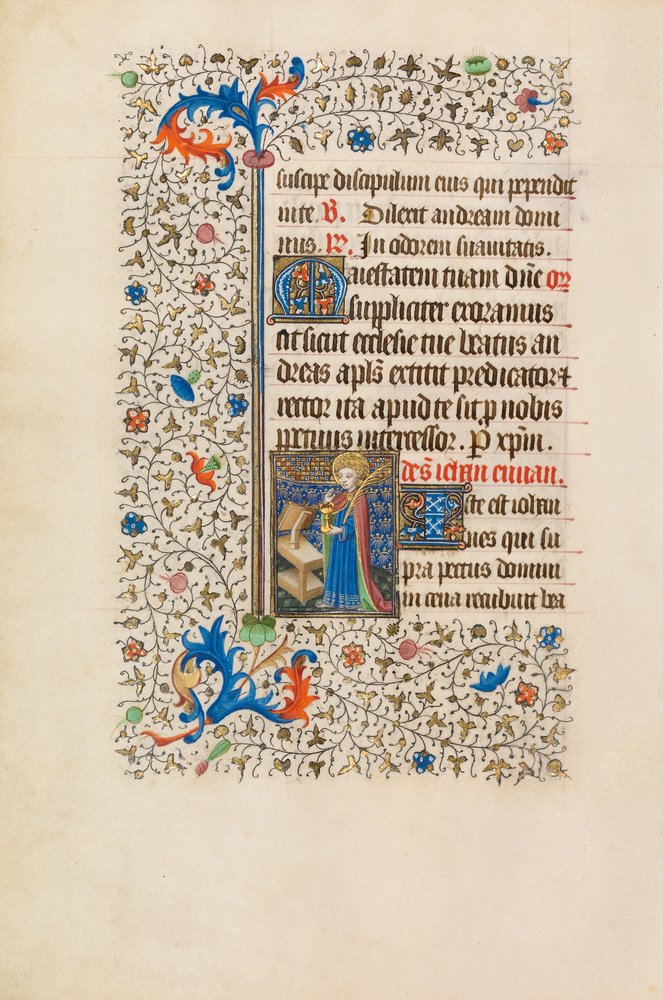 suscipe discipulum eius qui pependit
in te. V. Dilexit andream domi
nus. R. In odorem suavitatis.
Maiestatem tuam dn̄e or̄
suppliciter exoramus
ut sicut ecclesie tue beatus an
dreas apl̄s extitit predicator et
rector ita apud te sit p nobis
ppetuus intercessor. P xp̄m.
de s. iohan euuan.
Iste est iohan
nes qui su
pra pectus domini
in cena recubuit bea